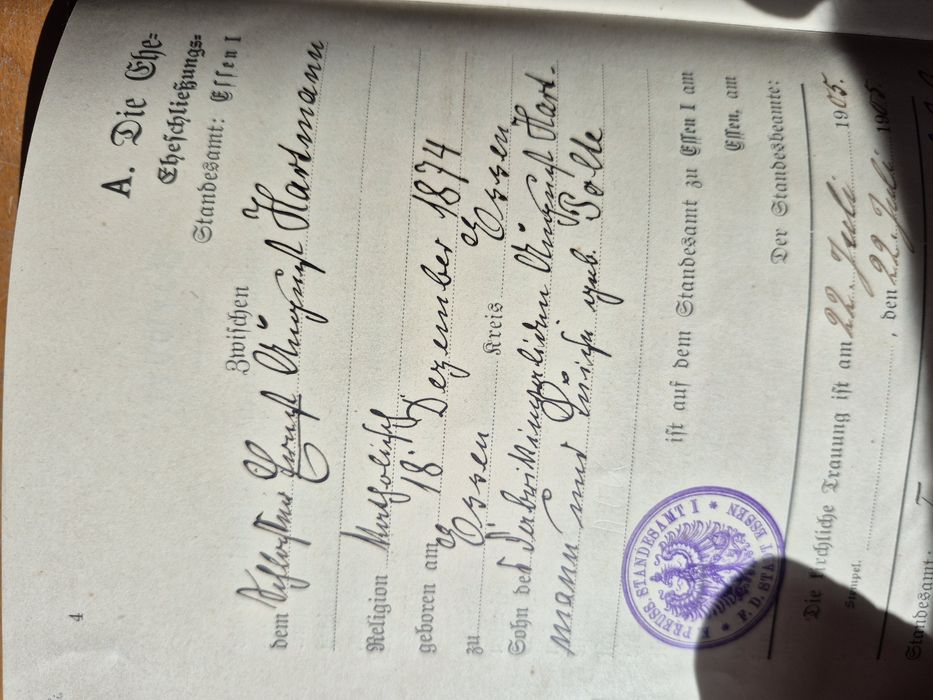 4
A. Die Ehe=
Eheschließungs=
Standesamt: Essen I
Zwischen
dem Schlosser Ernst August Hartmann
Religion katholisch
geboren am 18. Dezember 1874
zu Essen Kreis Essen
Sohn des August Hart-
mann und geb. Nolte
ist auf dem Standesamt zu Essen I am
Essen, am
Der Standesbeamte:
K. PREUSS. STANDESAMT I * F. D. STADT ESSEN *
Die kirchliche Trauung ist am 22. Juli 1905.
Stempel.
, den 22. Juli 1905
Standesamt.